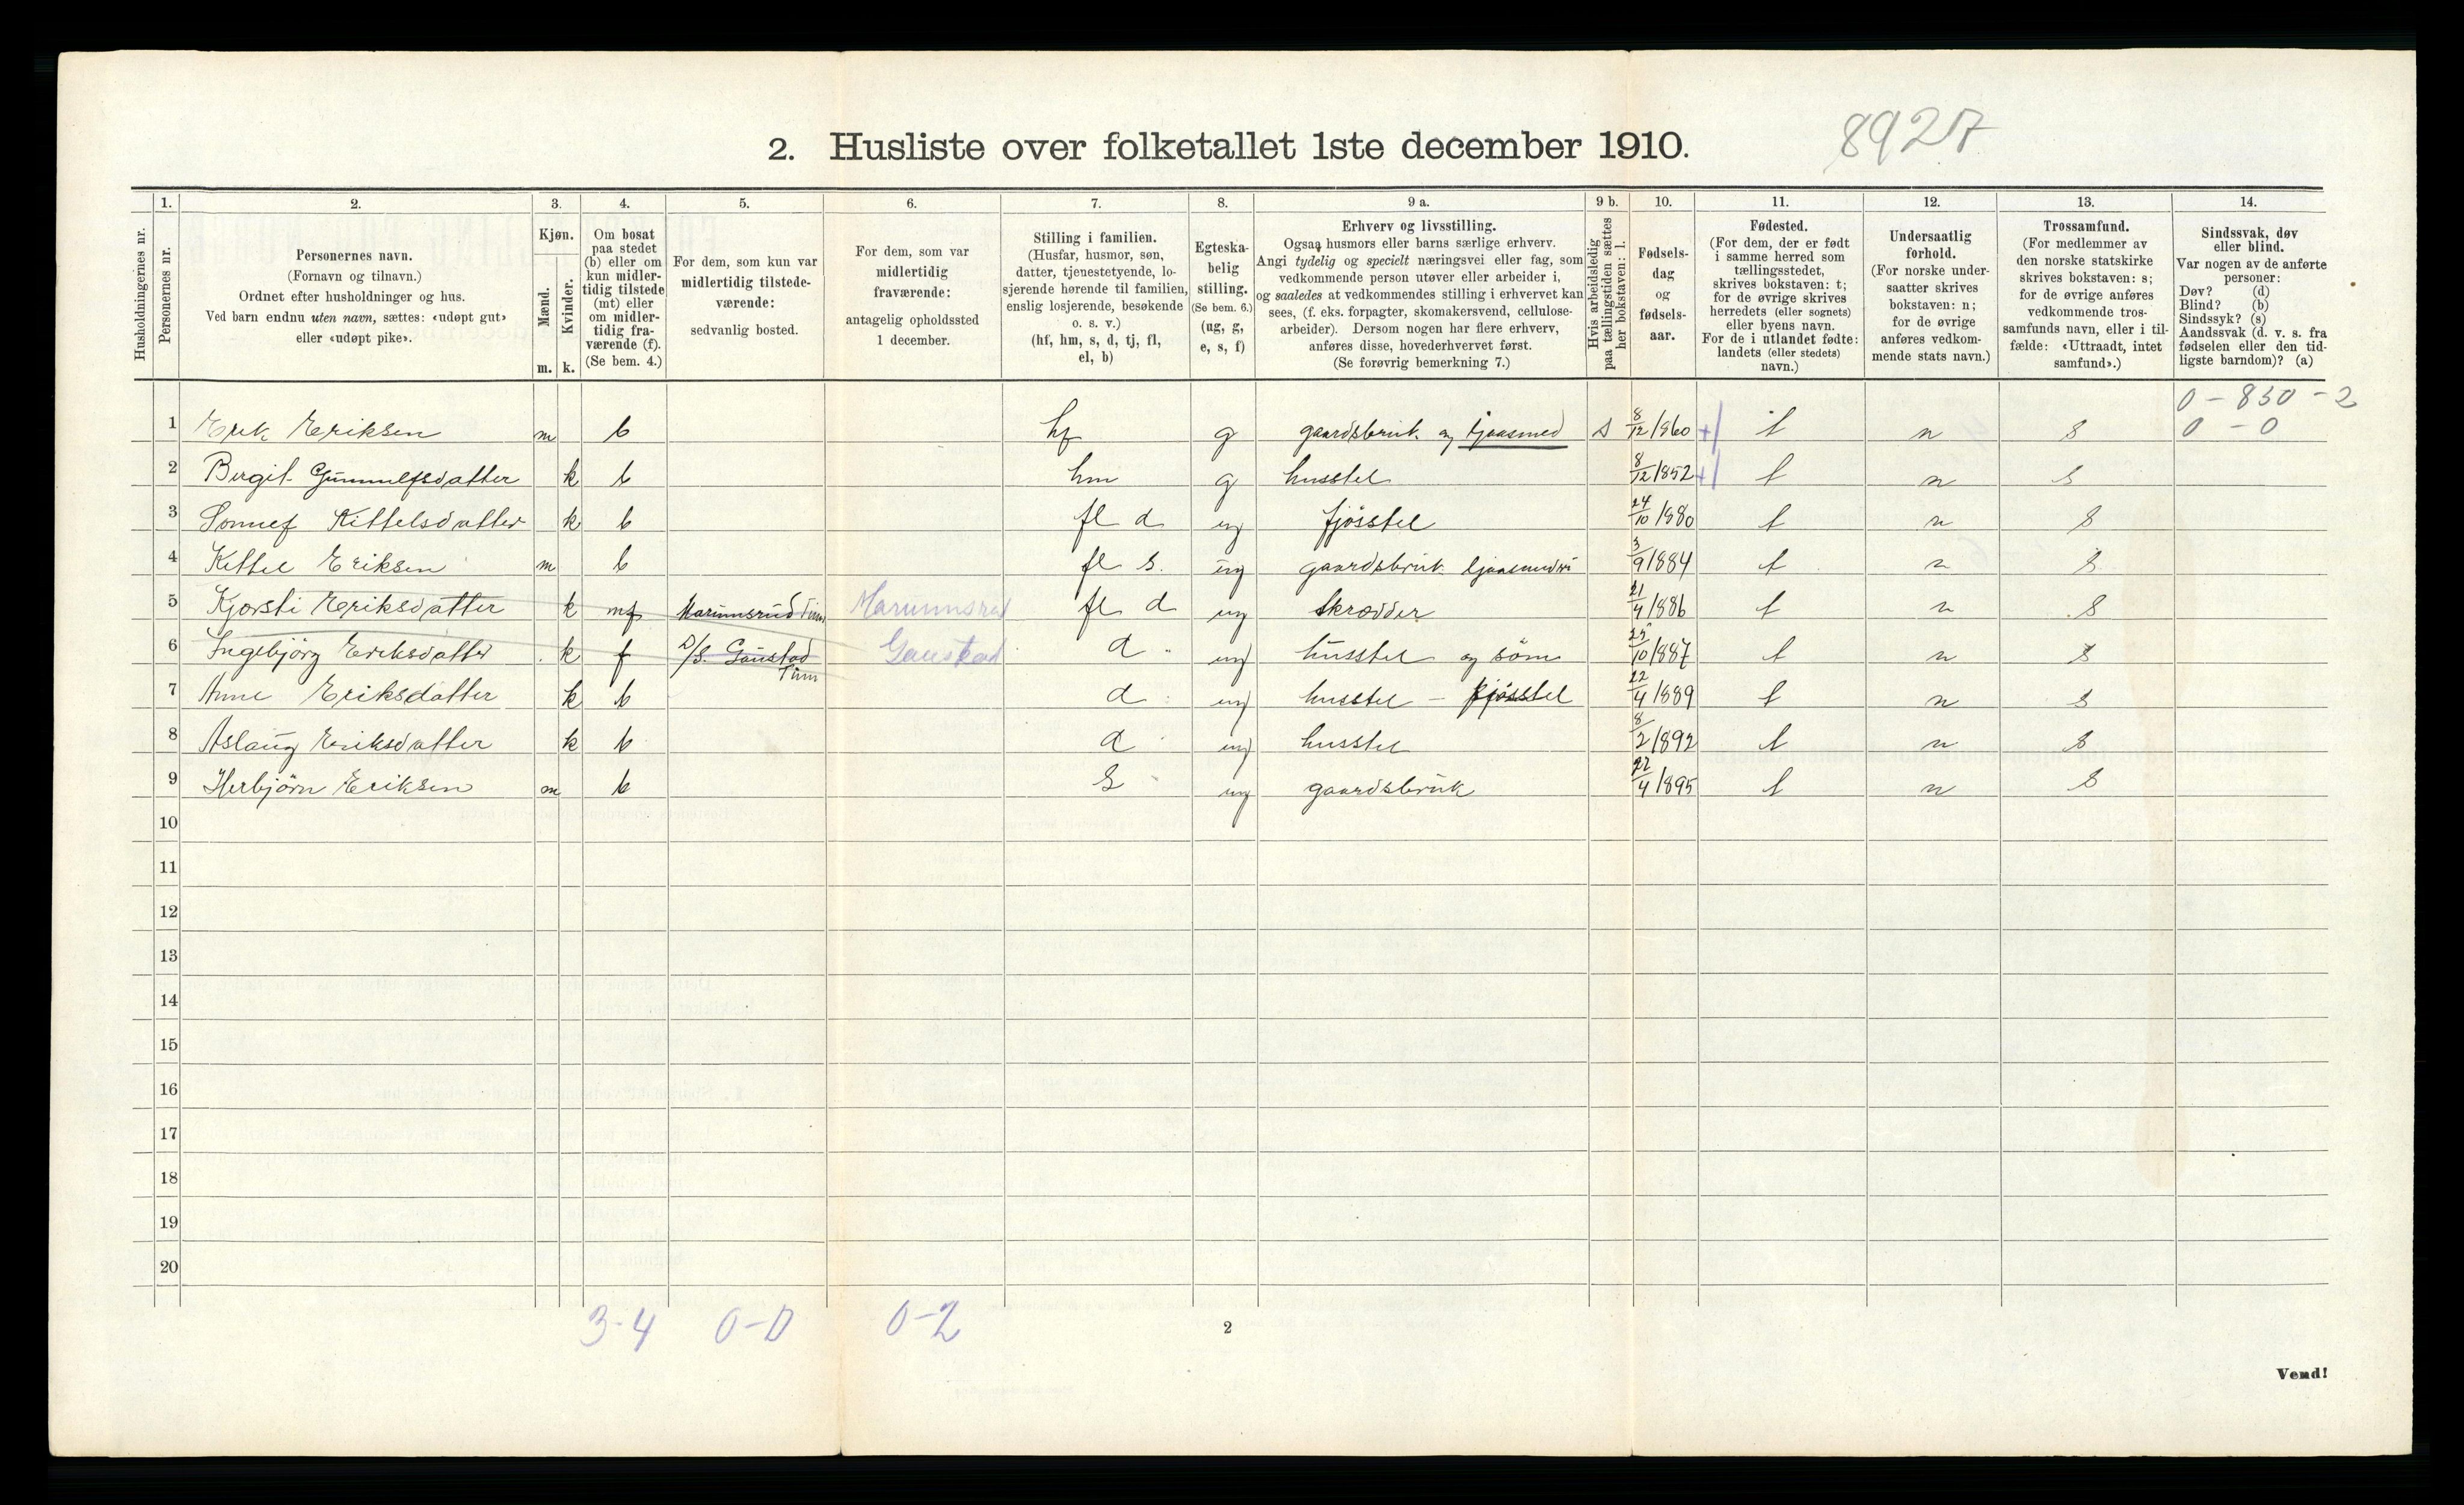 8927
2. Husliste over folketallet 1ste december 1910.
Husholdningernes nr.
1.
Personernes nr.
2.
Personernes navn.
(Fornavn og tilnavn.)
Ordnet efter husholdninger og hus.
Ved barn endnu uten navn, sættes: «udøpt gut»
eller «udøpt pike».
3.
Kjøn.
Mænd.
Kvinder.
m. k.
4.
Om bosat
paa stedet
(b) eller om
kun midler-
tidig tilstede
(mt) eller
om midler-
tidig fra-
værende (f).
(Se bem. 4.)
5.
For dem, som kun var
midlertidig tilstede-
værende:
sedvanlig bosted.
6.
For dem, som var
midlertidig
fraværende:
antagelig opholdssted
1 december.
7.
Stilling i familien.
(Husfar, husmor, søn,
datter, tjenestetyende, lo-
sjerende hørende til familien,
enslig losjerende, besøkende
o. s. v.)
(hf, hm, s, d, tj, fl,
el, b)
8.
Egteska-
belig
stilling.
(Se bem. 6.)
(ug, g,
e, s, f)
9 a.
Erhverv og livsstilling.
Ogsaa husmors eller barns særlige erhverv.
Angi tydelig og specielt næringsvei eller fag, som
vedkommende person utøver eller arbeider i,
og saaledes at vedkommendes stilling i erhvervet kan
sees, (f. eks. forpagter, skomakersvend, cellulose-
arbeider). Dersom nogen har flere erhverv,
anføres disse, hovederhvervet først.
(Se forøvrig bemerkning 7.)
9 b.
Hvis arbeidsledig
paa tællingstiden sættes
her bokstaven: l.
10.
Fødsels-
dag
og
fødsels-
aar.
11.
Fødested.
(For dem, der er født
i samme herred som
tællingsstedet,
skrives bokstaven: t;
for de øvrige skrives
herredets (eller sognets)
eller byens navn.
For de i utlandet fødte:
landets (eller stedets)
navn.)
12.
Undersaatlig
forhold.
(For norske under-
saatter skrives
bokstaven: n;
for de øvrige
anføres vedkom-
mende stats navn.)
13.
Trossamfund.
(For medlemmer av
den norske statskirke
skrives bokstaven: s;
for de øvrige anføres
vedkommende tros-
samfunds navn, eller i til-
fælde: «Uttraadt, intet
samfund».)
14.
Sindssvak, døv
eller blind.
Var nogen av de anførte
personer:
Døv? (d)
Blind? (b)
Sindssyk? (s)
Aandssvak (d. v. s. fra
fødselen eller den tid-
ligste barndom)? (a)
0 - 830 - 2
0 - 0
1 Erik Eriksen m b hf g gaardsbruk og ljaasmed s 8/12 1860 t n s
2 Birgit Gunnulfsdatter k b hm g husstel 8/12 1852 t n s
3 Sonnef Kittelsdatter k b fl d ug fjösstel 24/10 1880 t n s
4 Kittel Eriksen m b fl s. ug gaardsbruk 3/9 1884 t n s
5 Kjorsti Eriksdatter k mf Marumsrud Tinn Marumsrud fl d ug skrædder 21/4 1886 t n s
6 Ingebjörg Eriksdatter k f D/S. Gaustad Tinn Gaustad d ug husstel og söm 25/10 1887 t n s
7 Anne Eriksdatter k b d ug husstel - fjösstel 22/4 1889 t n s
8 Aslaug Eriksdatter k b d ug husstel 8/2 1892 t n s
9 Herbjörn Eriksen m b s ug gaardsbruk 22/4 1895 t n s
10
11
12
13
14
15
16
17
18
19
20
3-4 0-0 0-2
2
Vend!